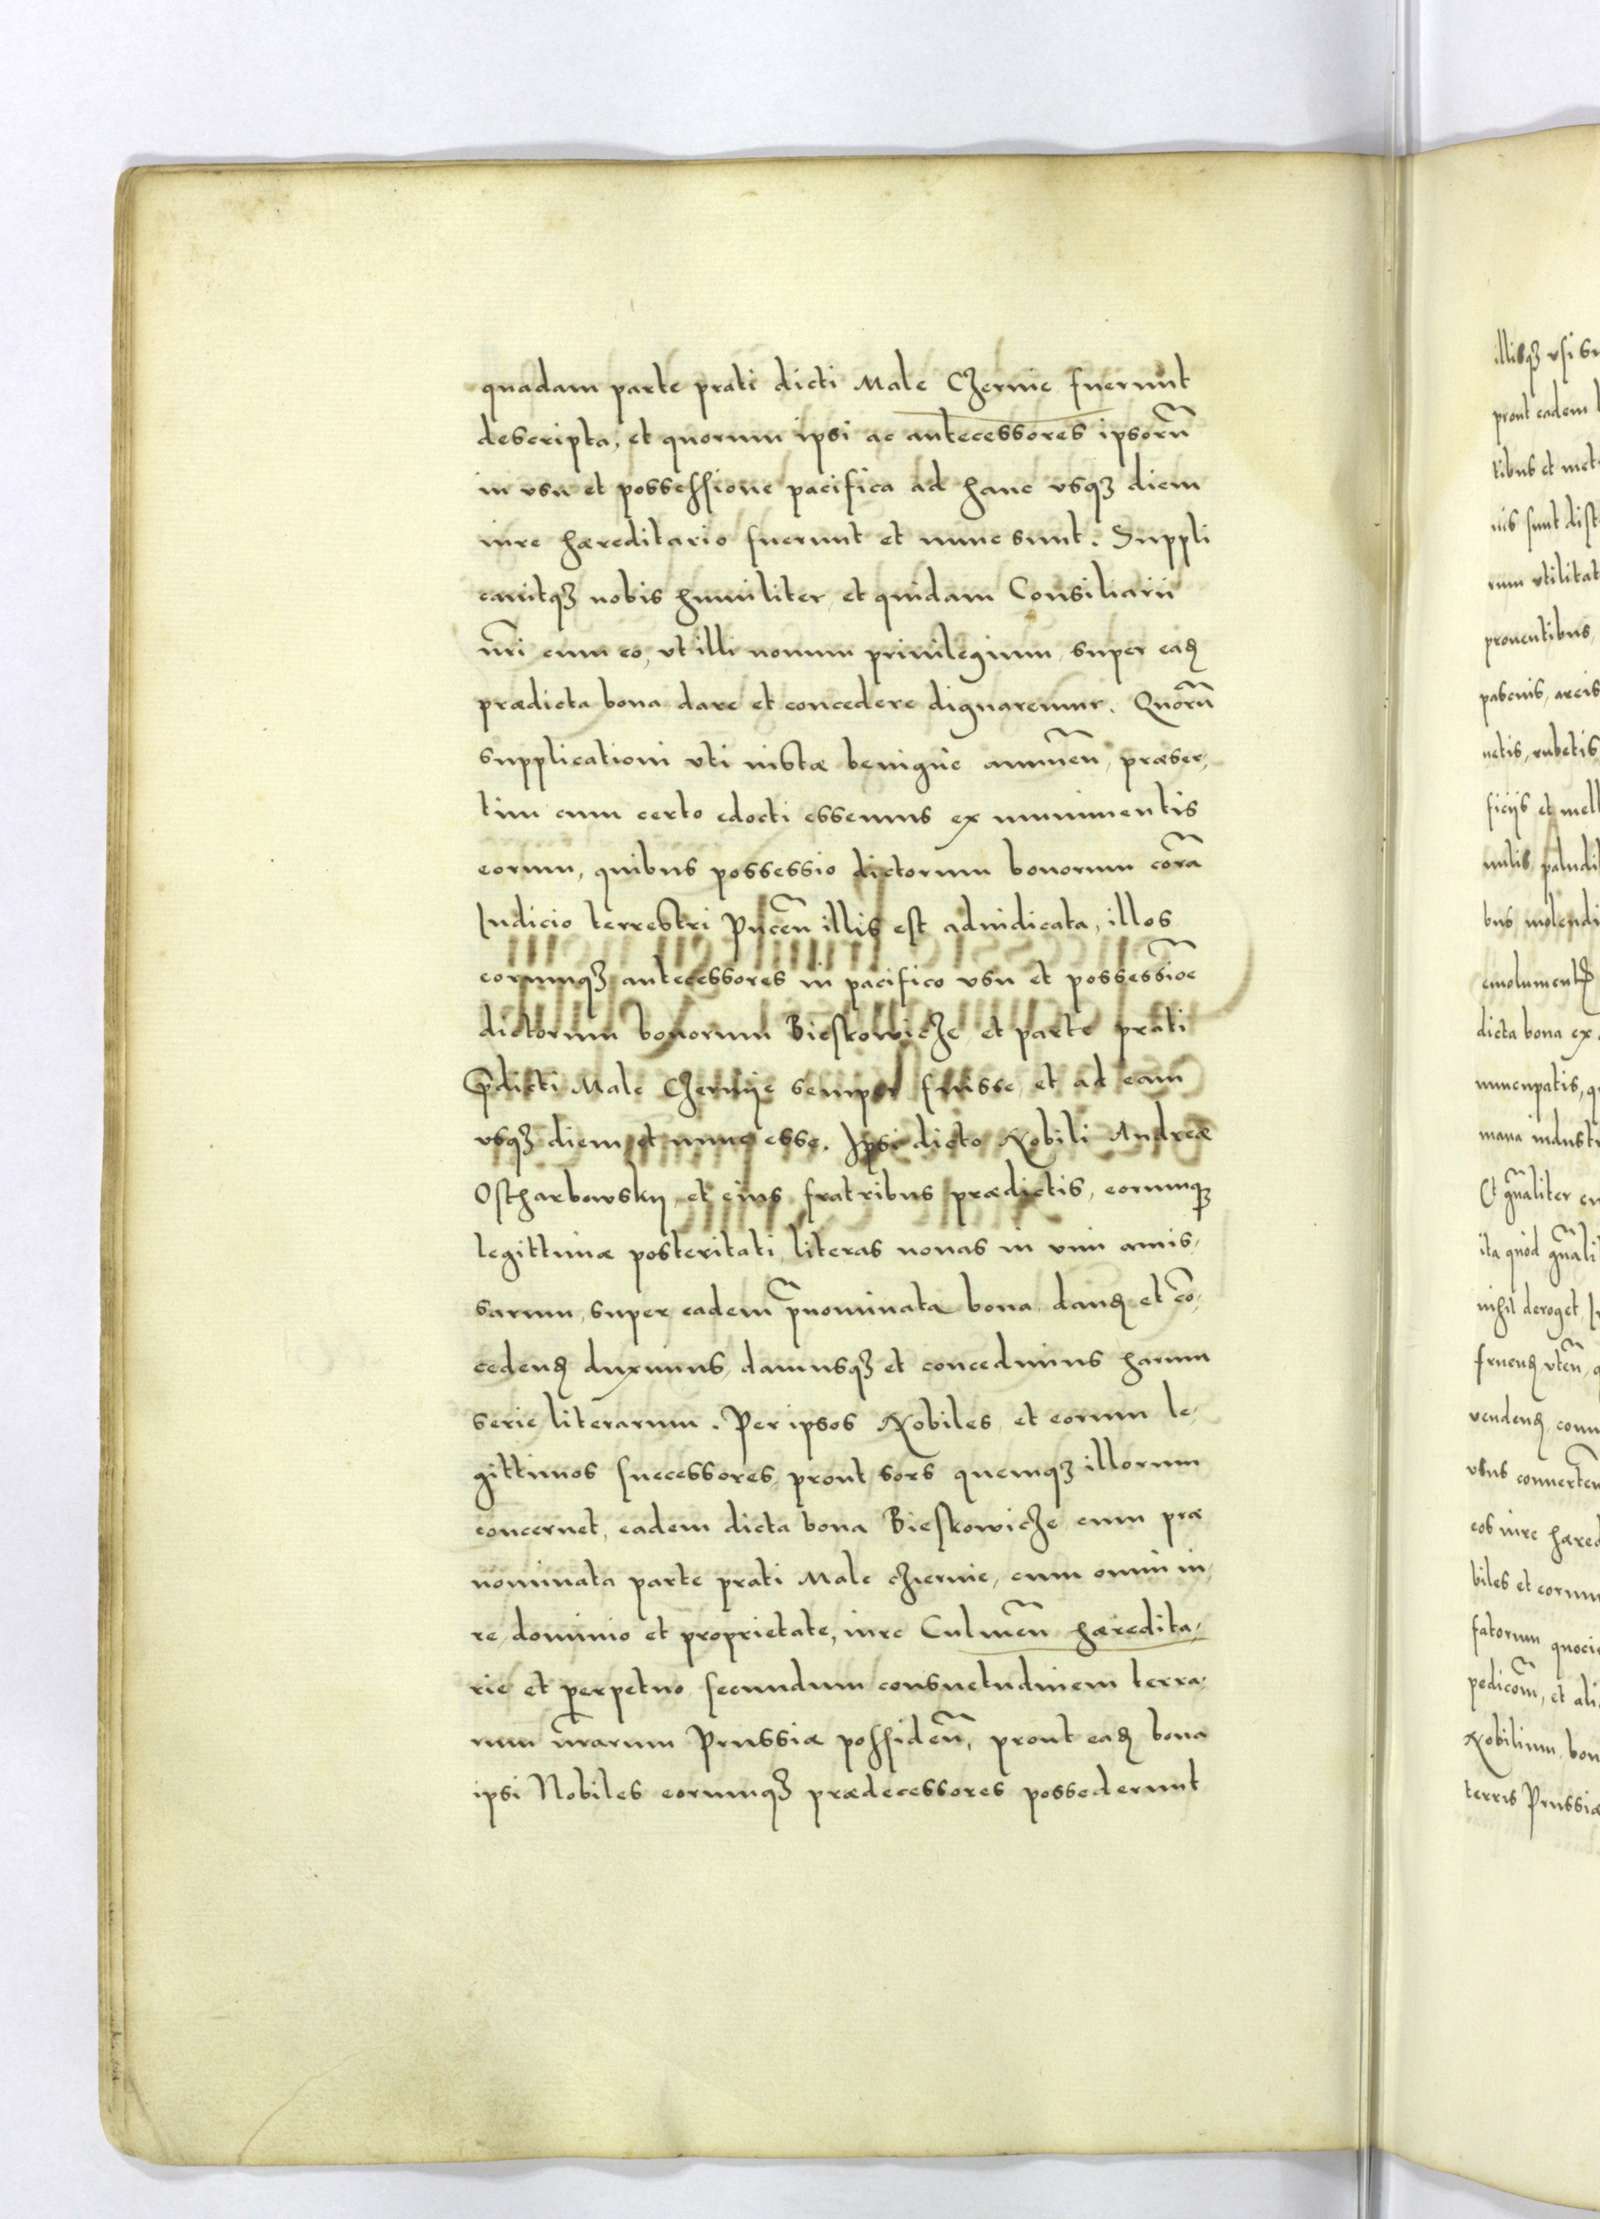 quadam parte prati dicti Male Czernie fuerunt
descripta, et quorum ipsi ac antecessores ipsorũ
in vsu et possessione pacifica ad hanc vsqꝫ diem
iure hæreditario fuerunt et nunc sunt. Suppli
cauitqꝫ nobis humiliter, et quidam Consiliarii
nr̃i cum eo, vt illi nouum priuilegium, super eaꝺ
prædicta bona dare et concedere dignaremur. Quorũ
supplicationi vti iustæ benigne annueñ, præser,
tim cum certo edocti essemus ex munimentis
eorum, quibus possessio dictorum bonorum corã
Iudicio terrestri Puceñ illis est adiudicata, illos
eorumqꝫ antecessores in pacifico vsu et possessiõe
dictorum bonorum Bieskowicze et parte prati
p̃dicti Male Czerniie semper fuisse, et ad eam
vsqꝫ diem et nunc esse. Ipsi dicto Nobili Andreæ
Ostharbowskij, et eius fratribus prædictis, eorumqꝫ
legittimæ posteritati, literas nouas in vim amis,
sarum, super eadem p̃nominata bona danꝺ et cõ,
cedenꝺ duximus, damusqꝫ et concedimus harum
serie literarum. Per ipsos Nobiles et eorum le,
gittimos successores, prout sors quemqꝫ illorum
concernet, eadem dicta bona Bieskowicze cum præ
nominata parte prati Male Czernie, cum omni iu,
re, dominio et proprietate, iure Culmeñ hæredita,
rie et perpetuo secundum consuetudinem terra,
rum nr̃arum Prussiæ possideñ, prout eaꝺ bona
ipsi Nobiles eorumqꝫ prædecessores possederunt
illisqꝫ vsi su
prout eadem
tibus et met
nis sunt dist
rum vtilitat
prouentibus,
pascuis, areis
netis, rubetis
ficijs et mell
nulis, paludi
bus molendi
emolumentꝭ
dicta bona ex
nuncupatis, q
mana industr
Et gñaliter
ita quod gñali
nihil deroget
fruenꝺ, vteñ,
vendenꝺ, com
vsus conuerteñ
eos iure hæred
biles et eorum
fatorum quoci
pedicom̃, et ali
Nobilium, bon
terris Prussiæ